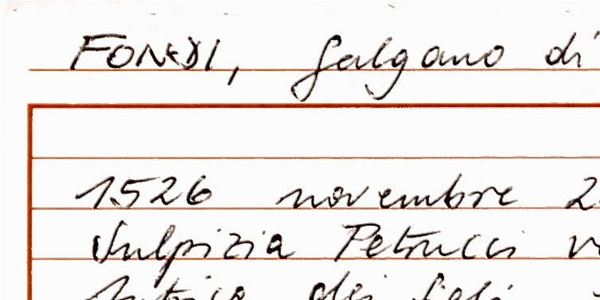 FONDI, Galgano di
1526 novembre 2
Sulpizia Petrucci v
dei